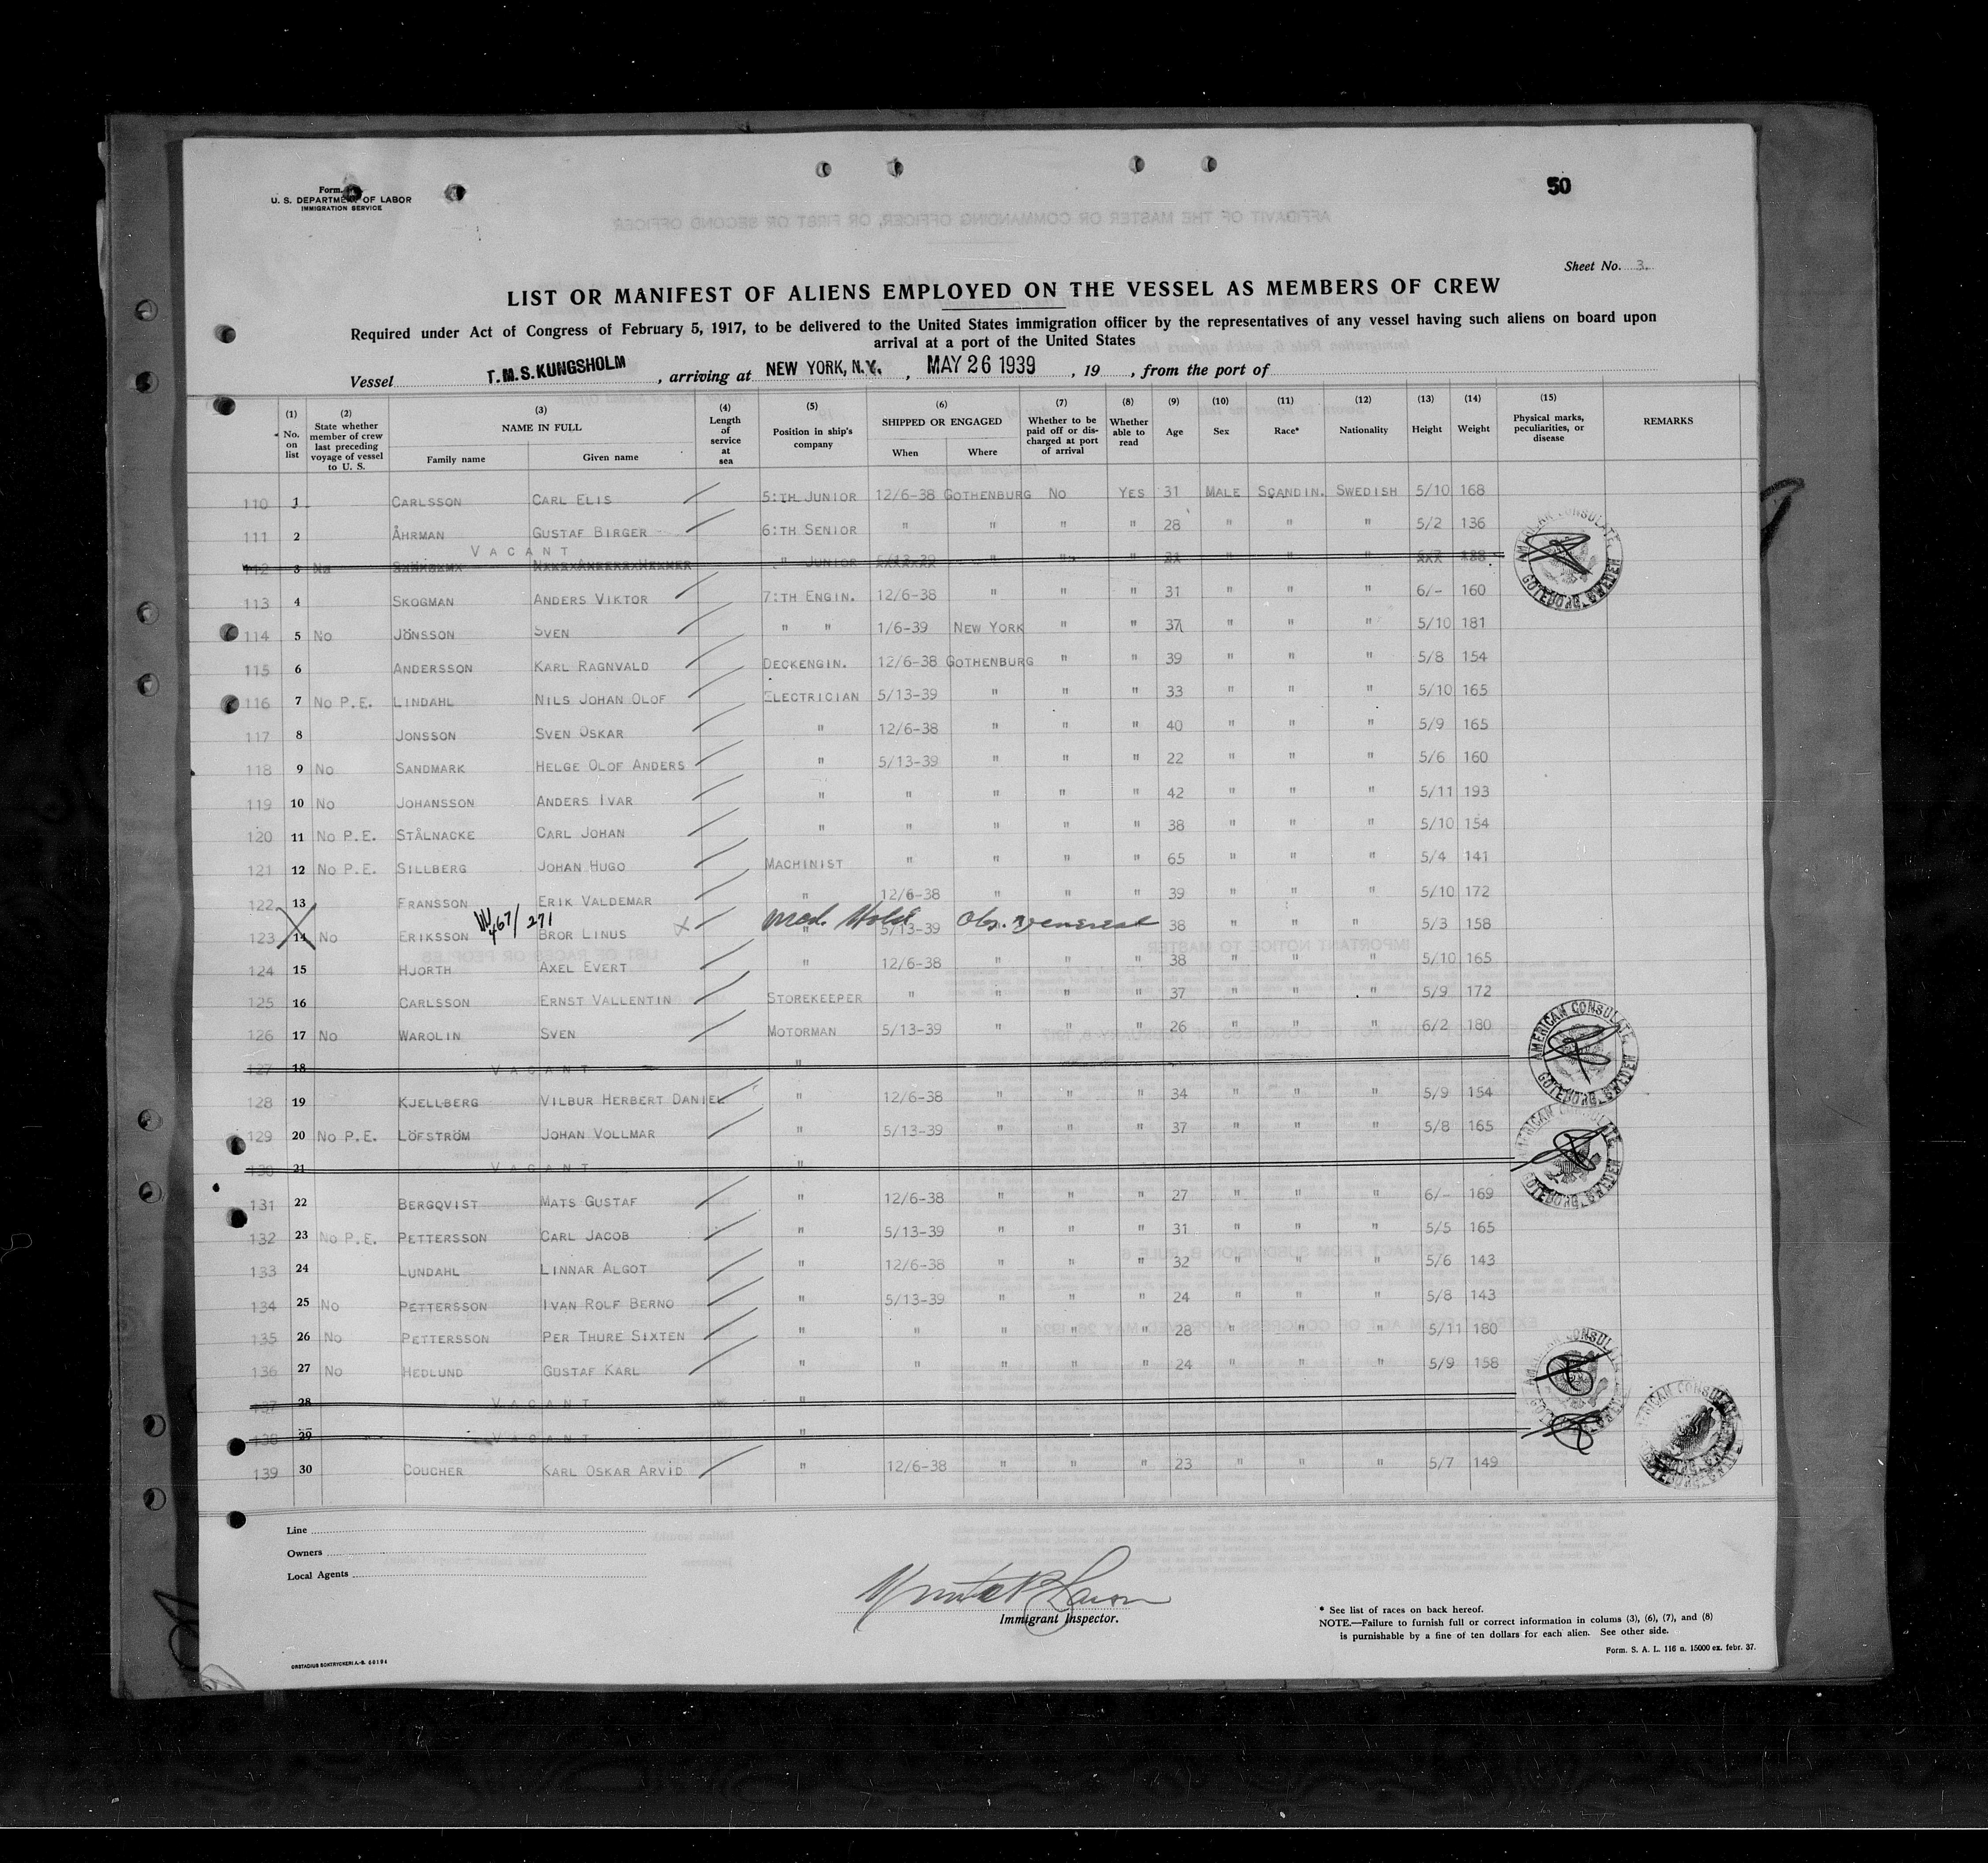 Form.
U. S. DEPARTMENT OF LABOR
IMMIGRATION SERVICE
50
Sheet No. 3.
LIST OR MANIFEST OF ALIENS EMPLOYED ON THE VESSEL AS MEMBERS OF CREW
Required under Act of Congress of February 5, 1917, to be delivered to the United States immigration officer by the representatives of any vessel having such aliens on board upon
arrival at a port of the United States
Vessel T.M.S. KUNGSHOLM, arriving at NEW YORK, N.Y., MAY 26 1939, 19 , from the port of
(1) No. on list (2) State whether member of crew last preceding voyage of vessel to U. S. (3) NAME IN FULL Family name Given name (4) Length of service at sea (5) Position in ship's company (6) SHIPPED OR ENGAGED When Where (7) Whether to be paid off or discharged at port of arrival (8) Whether able to read (9) Age (10) Sex (11) Race* (12) Nationality (13) Height (14) Weight (15) Physical marks, peculiarities, or disease REMARKS
110 1 CARLSSON CARL ELIS 5:TH JUNIOR 12/6-38 GOTHENBURG NO YES 31 MALE SCANDIN. SWEDISH 5/10 168
111 2 ÅHRMAN GUSTAF BIRGER 6:TH SENIOR " " " " 28 " " " 5/2 136
112 3 No VACANT " JUNIOR 5/13-39 " " " 31 " " "
113 4 SKOGMAN ANDERS VIKTOR 7:TH ENGIN. 12/6-38 " " " 31 " " " 6/- 160
114 5 NO JÖNSSON SVEN " " 1/6-39 NEW YORK " " 37 " " " 5/10 181
115 6 ANDERSSON KARL RAGNVALD DECKENGIN. 12/6-38 GOTHENBURG " " 39 " " " 5/8 154
116 7 NO P.E. LINDAHL NILS JOHAN OLOF ELECTRICIAN 5/13-39 " " " 33 " " " 5/10 165
117 8 JONSSON SVEN OSKAR " 12/6-38 " " " 40 " " " 5/9 165
118 9 NO SANDMARK HELGE OLOF ANDERS " 5/13-39 " " " 22 " " " 5/6 160
119 10 NO JOHANSSON ANDERS IVAR " " " " " 42 " " " 5/11 193
120 11 NO P.E. STÅLNACKE CARL JOHAN " " " " " 38 " " " 5/10 154
121 12 NO P.E. SILLBERG JOHAN HUGO MACHINIST " " " " 65 " " " 5/4 141
122 13 FRANSSON ERIK VALDEMAR " 12/6-38 " " " 39 " " " 5/10 172
467/271 Med. Hold Obs. Venereal
123 14 NO ERIKSSON BROR LINUS X " 5/13-39 38 " " " 5/3 158
124 15 HJORTH AXEL EVERT " 12/6-38 " " " 38 " " " 5/10 165
125 16 CARLSSON ERNST VALLENTIN STOREKEEPER " " " " 37 " " " 5/9 172
126 17 NO WAROLIN SVEN MOTORMAN 5/13-39 " " " 26 " " " 6/2 180
127 18 VACANT "
128 19 KJELLBERG VILBUR HERBERT DANIEL " 12/6-38 " " " 34 " " " 5/9 154
129 20 NO P.E. LÖFSTRÖM JOHAN VOLLMAR " 5/13-39 " " " 37 " " " 5/8 165
130 21 VACANT "
131 22 BERGQVIST MATS GUSTAF " 12/6-38 " " " 27 " " " 6/- 169
132 23 NO P.E. PETTERSSON CARL JACOB " 5/13-39 " " " 31 " " " 5/5 165
133 24 LUNDAHL LINNAR ALGOT " 12/6-38 " " " 32 " " " 5/6 143
134 25 NO PETTERSSON IVAN ROLF BERNO " 5/13-39 " " " 24 " " " 5/8 143
135 26 NO PETTERSSON PER THURE SIXTEN " " " " " 28 " " " 5/11 180
136 27 NO HEDLUND GUSTAF KARL " " " " " 24 " " " 5/9 158
137 28 VACANT "
138 29 VACANT "
139 30 COUCHER KARL OSKAR ARVID " 12/6-38 " " " 23 " " " 5/7 149
AMERICAN CONSULATE GOTEBORG, SWEDEN
AMERICAN CONSULATE GOTEBORG, SWEDEN
AMERICAN CONSULATE GOTEBORG, SWEDEN
Line
Owners
Local Agents
Immigrant Inspector.
* See list of races on back hereof.
NOTE.—Failure to furnish full or correct information in colums (3), (6), (7), and (8)
is punishable by a fine of ten dollars for each alien. See other side.
Form. S. A. L. 116 n. 15000 ex. febr. 37.
ORSTADIUS BOKTRYCKERI A.-B. 60194